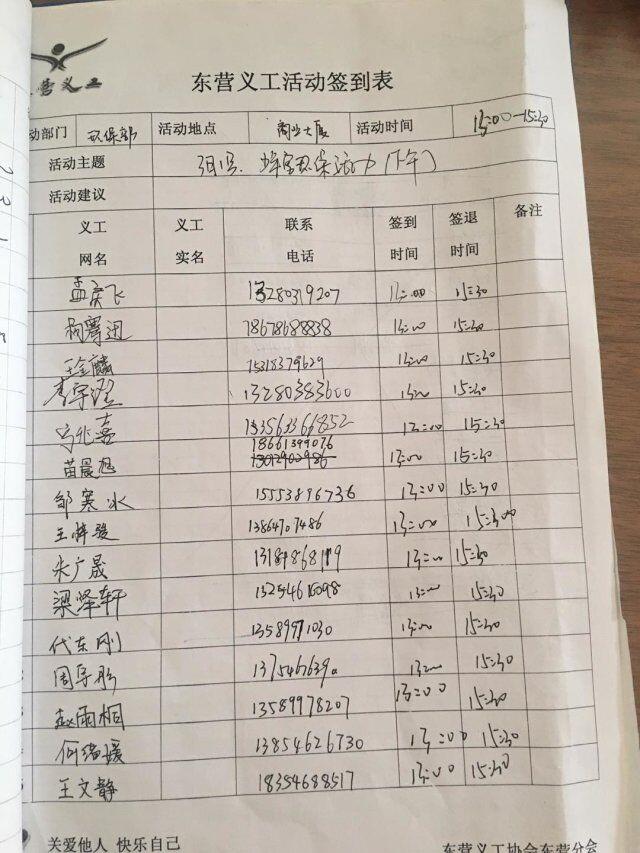 东营义工
东营义工活动签到表
动部门 环保部 活动地点 商业大厦 活动时间 13:00-15:30
活动主题 环保活动(下午)
活动建议
义工 义工 联系 签到 签退 备注
网名 实名 电话 时间 时间
孟庆飞 13280319207 13:00 15:30
18678688838 13:00 15:30
王金麟 15318379629 13:00 15:30
13280383600 1300 15:30
马兆嘉 13563366852 13:00 15:30
18661399076
苗晨旭 13:00 15:30
邹寒冰 15553896736 13:00 15:30
13864707486 13:00 15:300
朱广晟 13:00 15:30
梁泽轩 13:00 15:30
代东刚 13589971030 13:00 15:30
周导彤 13:00 15:30
赵雨桐 13589978207 13:00 15:30
何绪媛 13854626730 13:00 15:30
王文静 18354688517 13:00 15:30
关爱他人 快乐自己 东营义工协会东营分会